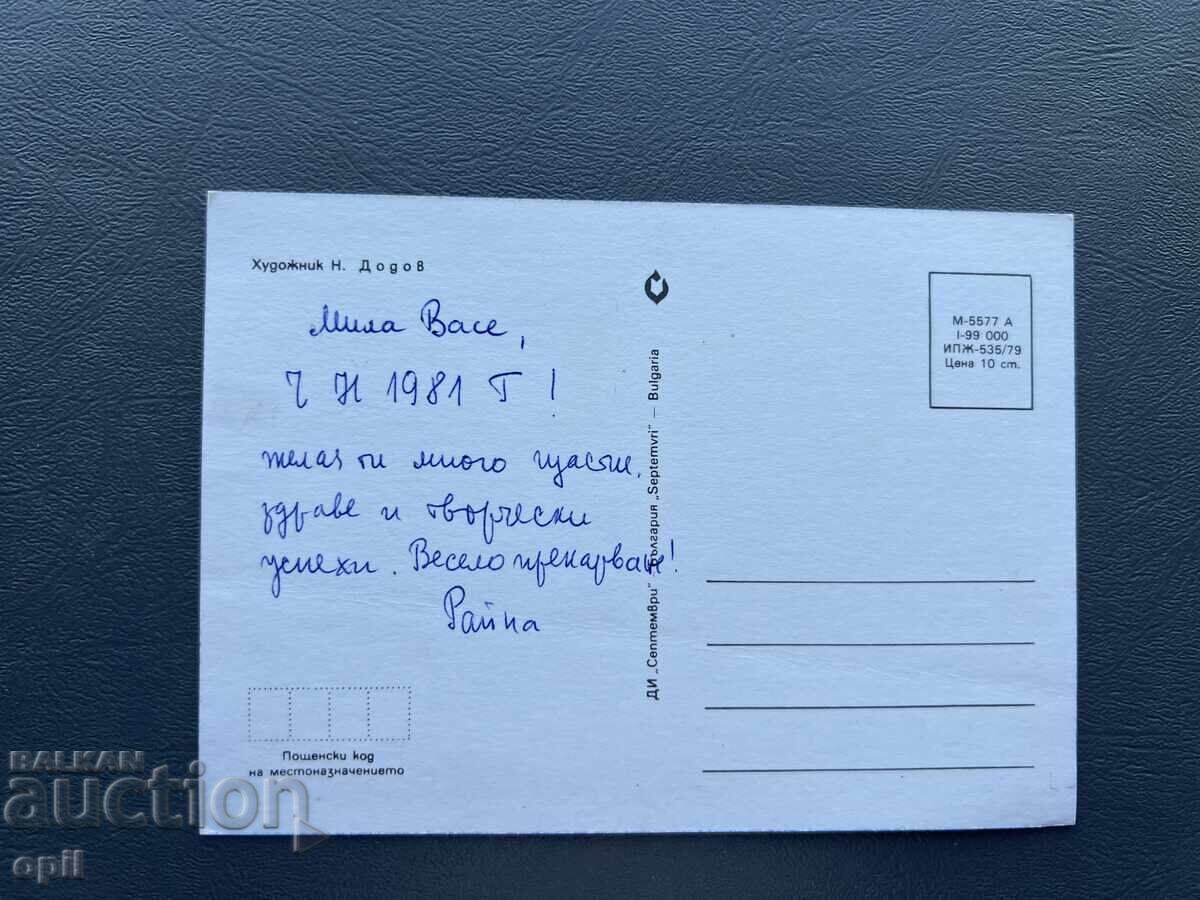 Художник Н. Додов
Мила Васе,
Ч Н 1981 Г!
желая ти много щастие,
здраве и творчески
успехи. Весело прекарване!
Райна
Пощенски код
на местоназначението
ДИ „Септември" България „Septemvri" — Bulgaria
М-5577 А
I-99 000
ИПЖ-535/79
Цена 10 ст.
BALKAN
auction
opil